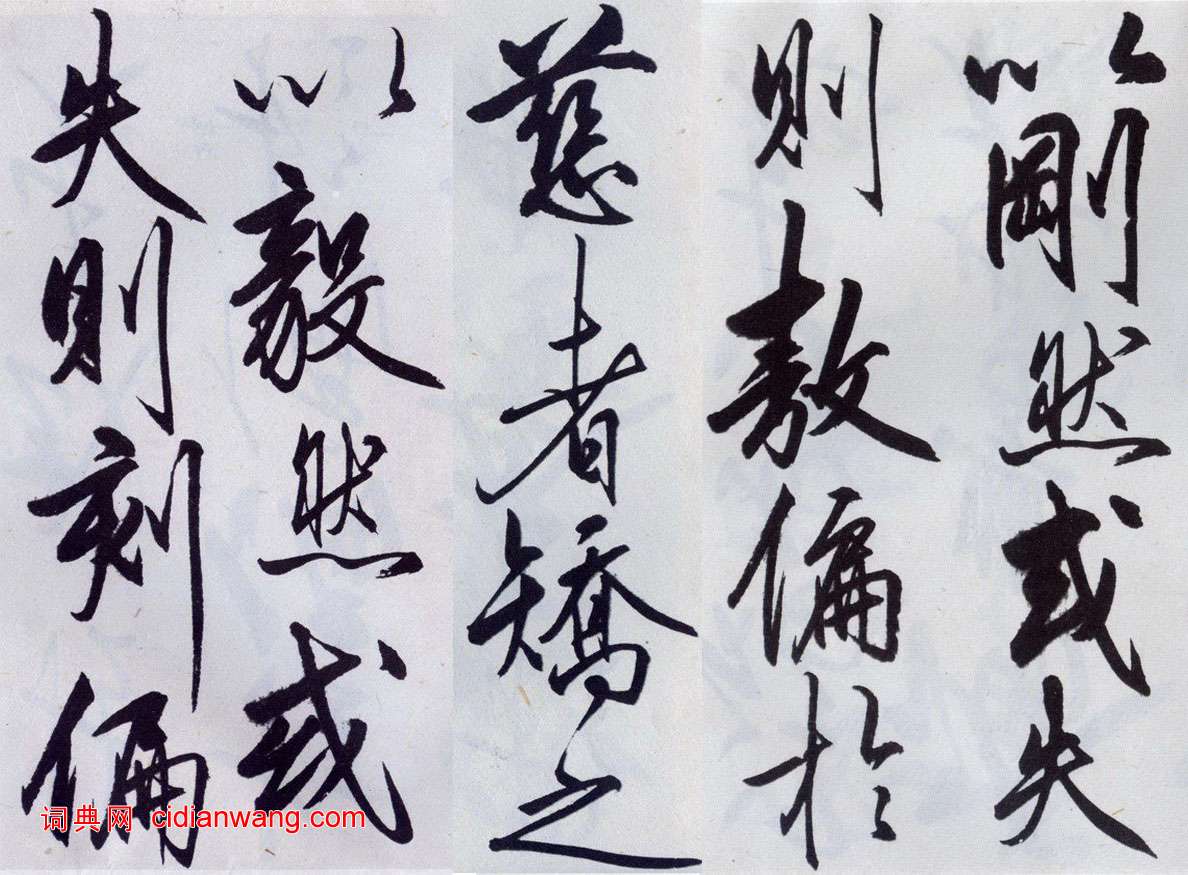 以剛然或失
則敖偏於
慈者矯之
以毅然或
失則刻偏
词典网 cidianwang.com